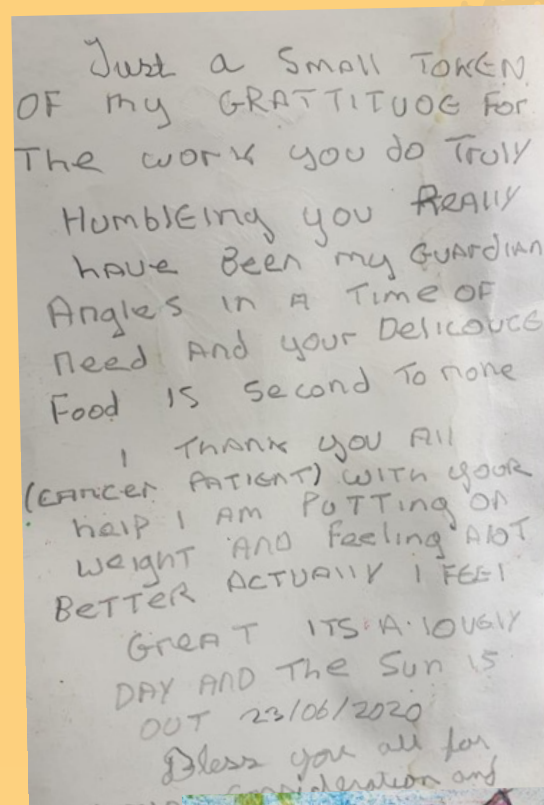 Just a small TOKEN
OF my GRATTITUDE For
The work you do Truly
HumblEing you REALLY
have Been my GUARDIAN
Angles in A Time OF
need And your DelicoucE
Food is second To none
I THANK you All
(CANCER PATIENT) WITH YOUR
help I AM PUTTING ON
weight AND feeling Alot
BETTER ACTUALLY I FEEl
GREAT ITS A lovely
DAY AND The Sun is
OUT 23/06/2020
Bless you all for
consideration and